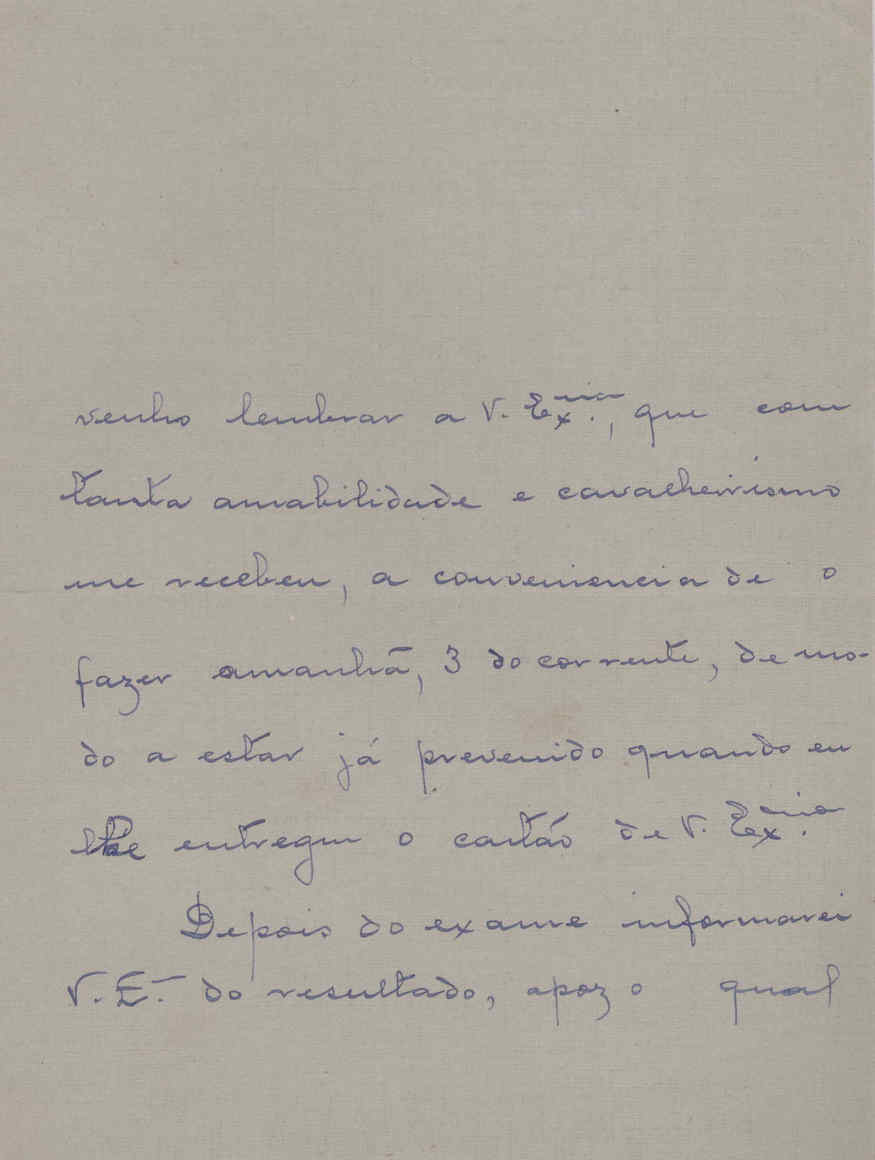 venho lembrar a V. Ex.ᵐⁱᵃ, que com
tanta amabilidade e cavalheirismo
me recebeu, a conveniencia de o
fazer amanhã, 3 do corrente, de mo-
do a estar já prevenido quando eu
lhe entregue o cartão de V. Ex.ᵐⁱᵃ
Depois do exame informarei
V. E. do resultado, apoz o qual